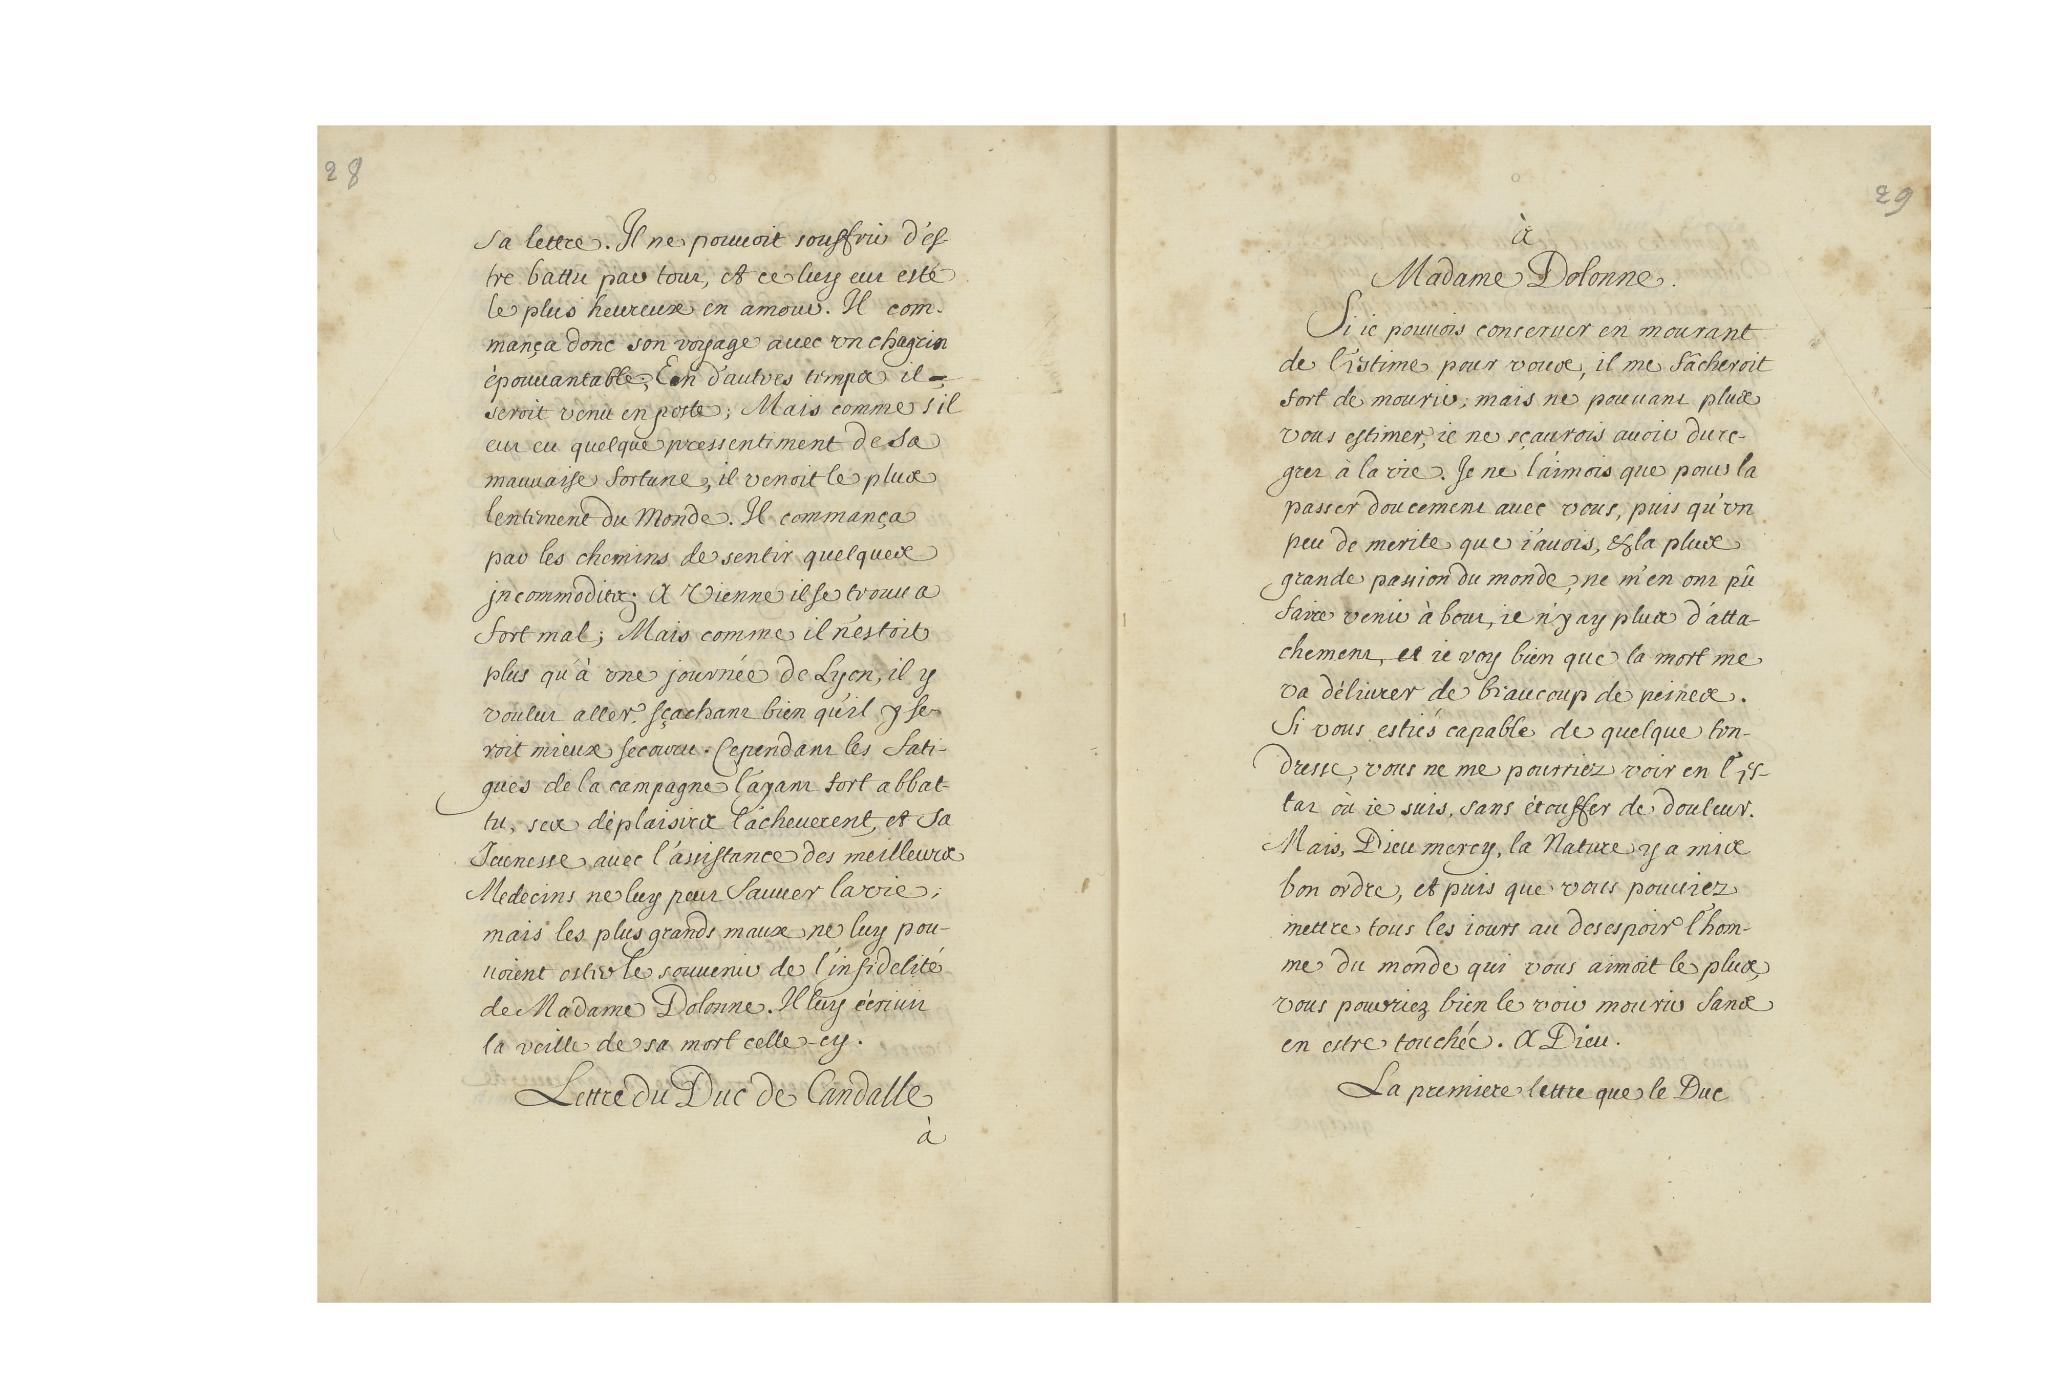 28
sa lettre. Il ne pouuoit souffrir d'es-
tre battu par tout, et ce luy eut esté
le plus heureux en amour. Il com-
mança donc son voyage auec vn chagrin
épouuantable, En d'autres temps il
seroit venu en poste; Mais comme s'il
eut eu quelque pressentiment de sa
mauuaise fortune, il venoit le plus
lentement du Monde. Il commança
par les chemins de sentir quelques
jncommoditez; A Vienne il se trouua
fort mal; Mais comme il n'estoit
plus qu'à vne journée de Lyon, il y
voulut aller, sçachant bien qu'il y se-
roit mieux secouru. Cependant les fati-
gues de la campagne l'ayant fort abbat-
tu, ses déplaisirs l'acheuerent, et sa
Jeunesse auec l'assistance des meilleurs
Medecins ne luy peut sauuer la vie;
mais les plus grands maux ne luy pou-
uoient oster le souuenir de l'infidelité
de Madame Dolonne. Il luy écriuit
la veille de sa mort celle-cy.
Lettre du Duc de Candalle
à
29
à
Madame Dolonne.
Si ie pouuois conseruer en mourant
de l'estime pour vous, il me fâcheroit
fort de mourir; mais ne pouuant plus
vous estimer, ie ne sçaurois auoir du re-
gret à la vie. Je ne l'aimois que pour la
passer doucement auec vous, puis qu'vn
peu de merite que i'auois, & la plus
grande passion du monde, ne m'en ont pû
faire venir à bout, ie n'y ay plus d'atta-
chement, et ie voy bien que la mort me
va déliurer de beaucoup de peines.
Si vous estiés capable de quelque ten-
dresse, vous ne me pourriez voir en l'es-
tat où ie suis, sans étouffer de douleur.
Mais, Dieu mercy, la Nature y a mis
bon ordre, et puis que vous pouuiez
mettre tous les iours au desespoir l'hom-
me du monde qui vous aimoit le plus,
vous pourriez bien le voir mourir sans
en estre touchée. A Dieu.
La premiere lettre que le Duc